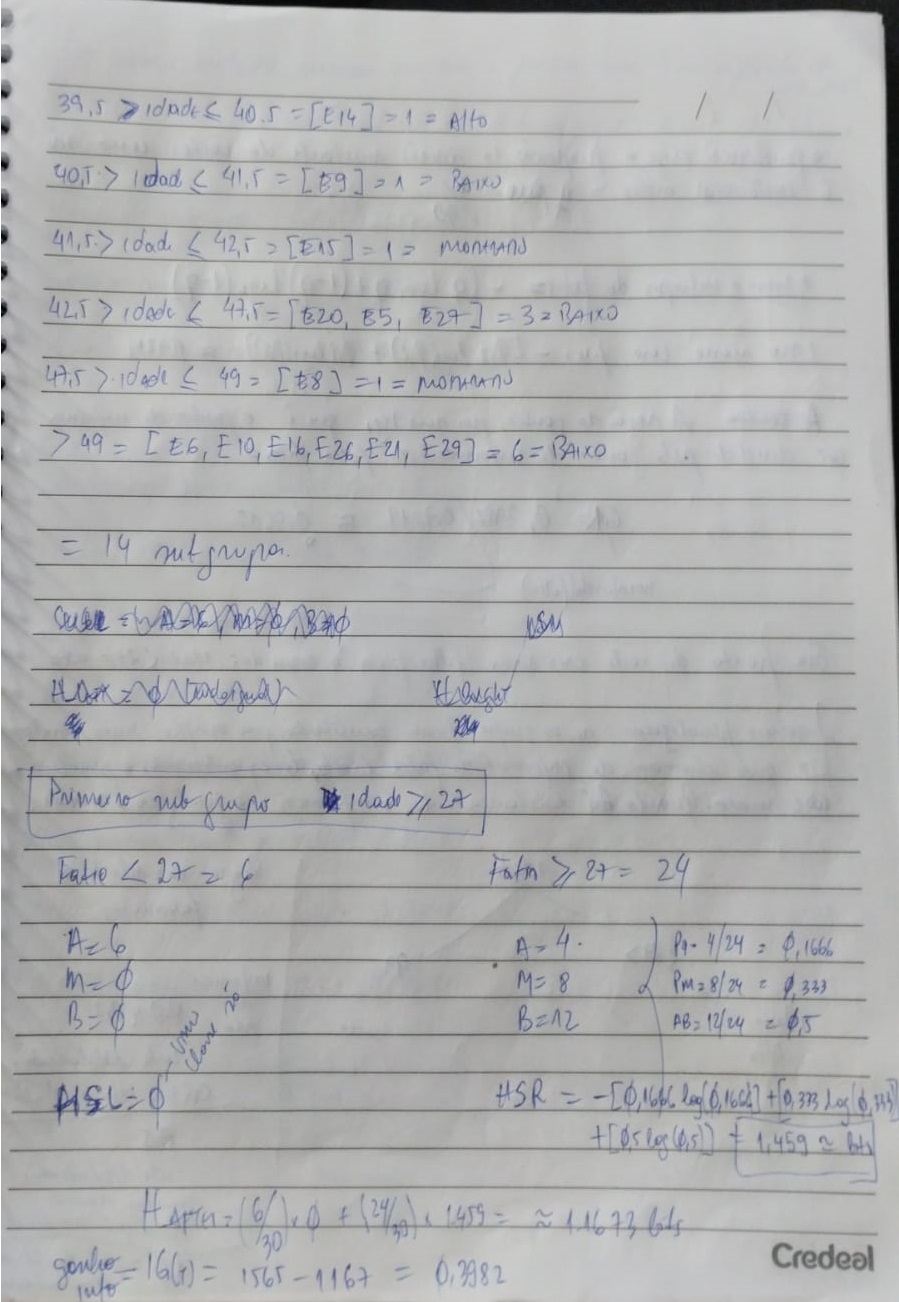 39,5 > idade ≤ 40.5 = [E14] = 1 = Alto
/ /
40,5 > idad ≤ 41,5 = [E9] = 1 = BAIXO
41,5 > idade ≤ 42,5 = [E15] = 1 =
42,5 > idade ≤ 47,5 = [E20, E5, E27] = 3 = BAIXO
47,5 > idade ≤ 49 = [E8] = 1 =
> 49 = [E6, E10, E16, E26, E21, E29] = 6 = BAIXO
= 14 subgrupos.
Primeiro subgrupo idade ≥ 27
< 27 = 6
≥ 27 = 24
A = 6
M = ϕ
B = ϕ
uma classe só
HSL = ϕ
A = 4
M = 8
B = 12
PA = 4/24 = ϕ,1666
PM = 8/24 = ϕ,333
AB = 12/24 = ϕ,5
HSR = -[ϕ,1666 log(ϕ,1666] + [0,333 log(ϕ,333)]
+ [ϕ5 log(ϕ,5)] = 1,459 ≈ bits
= (6/30) × ϕ + (24/30) × 1459 = ≈ 1.1673 bits
ganho info = IG(T) = 1565 - 1167 = 0,3982
Credeal